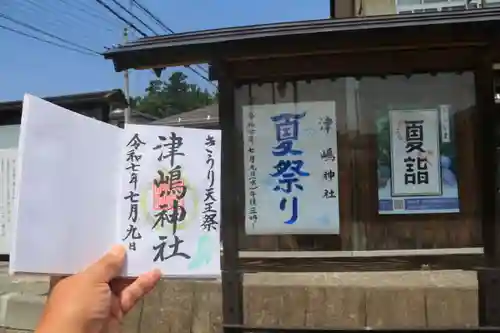 きうり天王祭
津嶋神社
令和七年七月九日
津嶋神社
夏祭り
令和七年七月九日(水)午後三時〜
夏詣